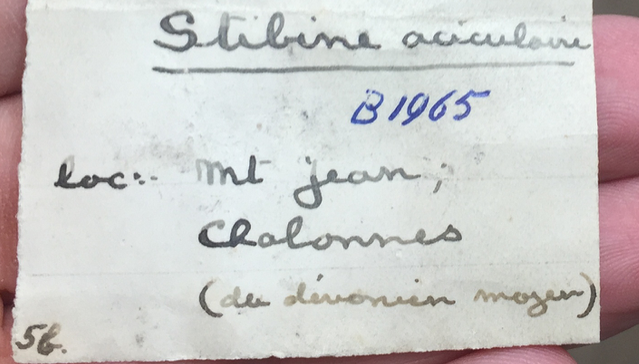 Stibine aciculaire
B1965
loc:- Mt Jean;
Chalonnes
(du dévonien moyen)
5f.